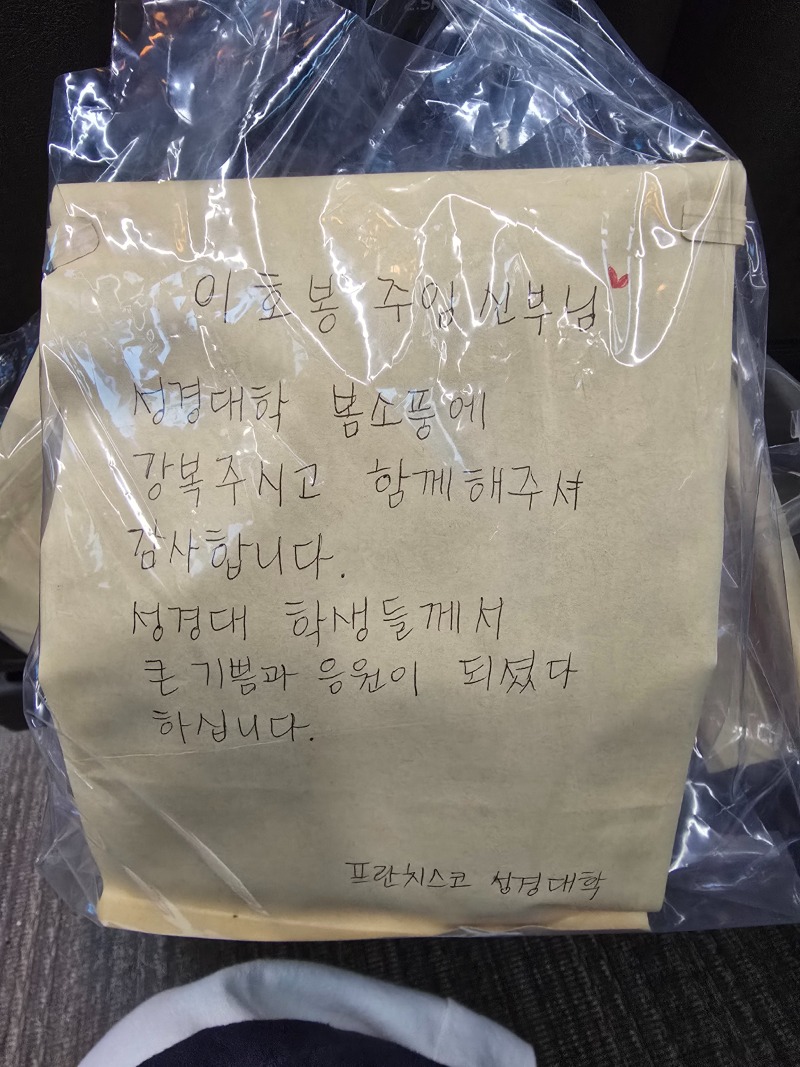 이호봉 주임신부님
성경대학 봄소풍에
강복주시고 함께해주셔
감사합니다.
성경대 학생들께서
큰 기쁨과 응원이 되셨다
하십니다.
프란치스코 성경대학